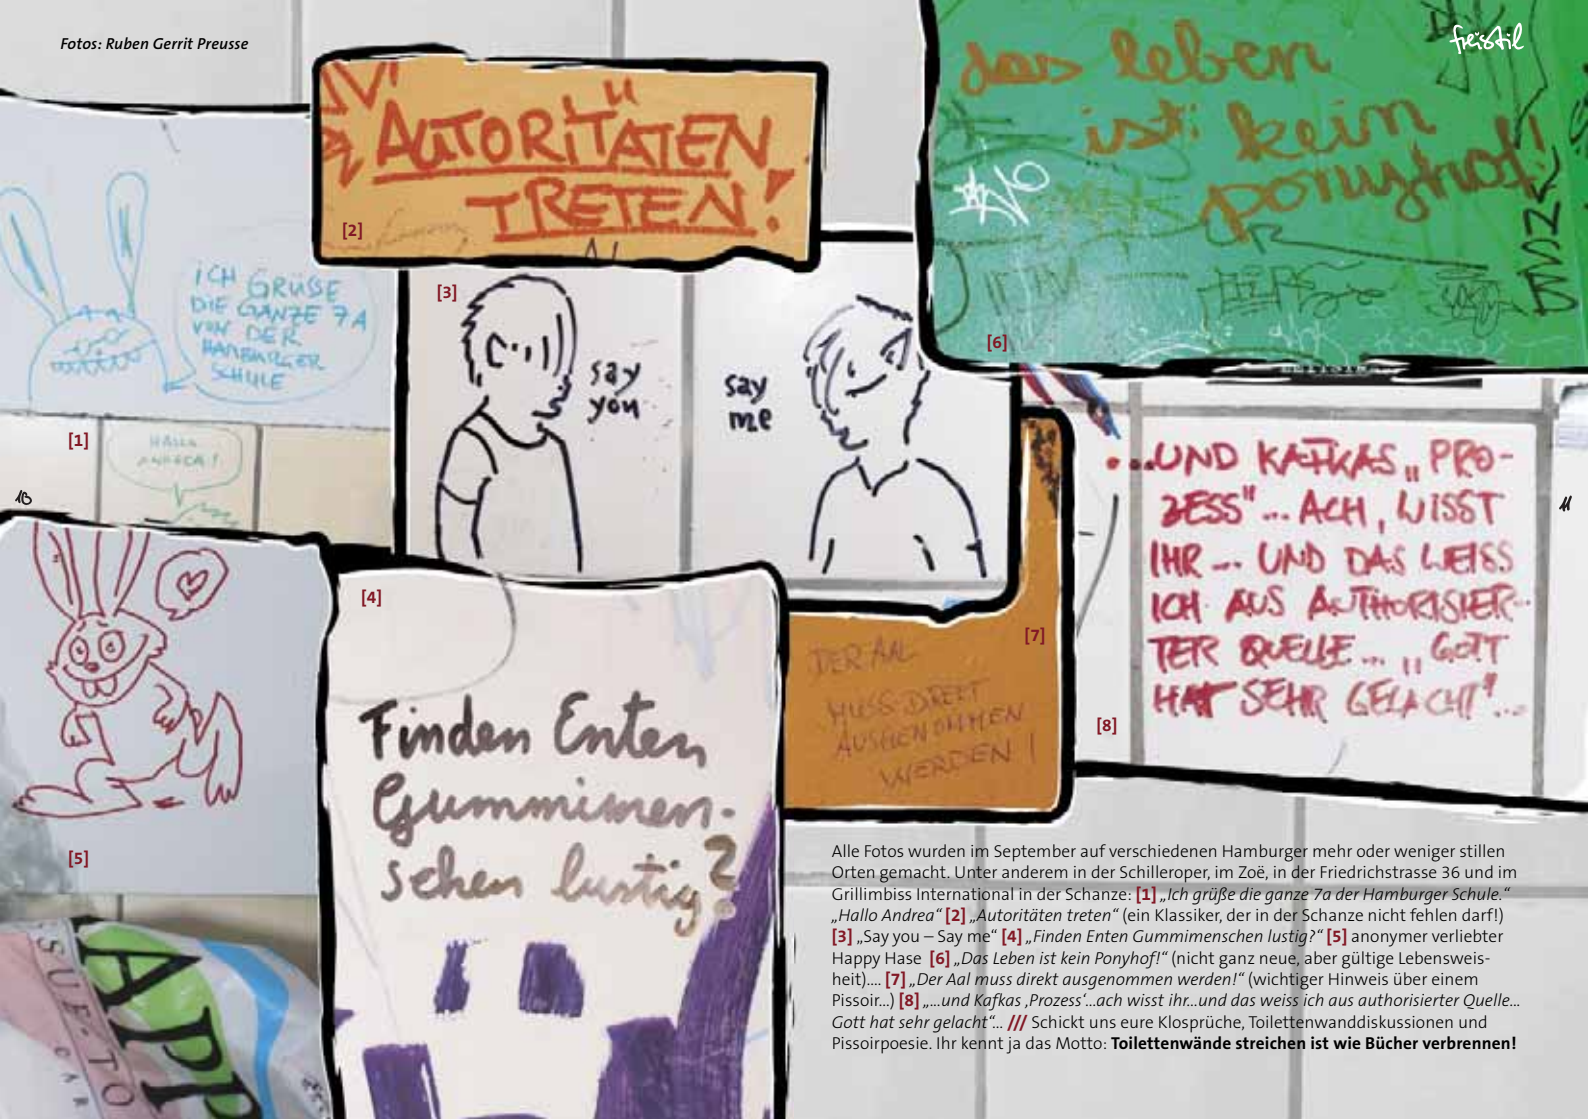 Fotos: Ruben Gerrit Preusse
freistil
AUTORITÄTEN
TRETEN!
[2]
das leben
ist kein
ponyhof!
[6]
ICH GRÜSSE
DIE GANZE 7A
VON DER
HAMBURGER
SCHULE
[1]
HALLO
ANDREA!
[3]
say
you
say
me
10
11
...UND KAFKAS „PRO-
ZESS"... ACH, WISST
IHR... UND DAS WEISS
ICH AUS AUTHORISIER-
TER QUELLE... „GOTT
HAT SEHR GELACHT"...
[8]
[5]
[4]
Finden Enten
Gummimen-
schen lustig?
[7]
DER AAL
MUSS DIREKT
AUSGENOMMEN
WERDEN!
SUE-TO
APP
Alle Fotos wurden im September auf verschiedenen Hamburger mehr oder weniger stillen
Orten gemacht. Unter anderem in der Schilleroper, im Zoë, in der Friedrichstrasse 36 und im
Grillimbiss International in der Schanze: [1] „Ich grüße die ganze 7a der Hamburger Schule.“
„Hallo Andrea“ [2] „Autoritäten treten“ (ein Klassiker, der in der Schanze nicht fehlen darf!)
[3] „Say you – Say me“ [4] „Finden Enten Gummimenschen lustig?“ [5] anonymer verliebter
Happy Hase [6] „Das Leben ist kein Ponyhof!“ (nicht ganz neue, aber gültige Lebensweis-
heit).... [7] „Der Aal muss direkt ausgenommen werden!“ (wichtiger Hinweis über einem
Pissoir...) [8] „...und Kafkas ‚Prozess‘...ach wisst ihr...und das weiss ich aus authorisierter Quelle...
Gott hat sehr gelacht“... /// Schickt uns eure Klosprüche, Toilettenwanddiskussionen und
Pissoirpoesie. Ihr kennt ja das Motto: Toilettenwände streichen ist wie Bücher verbrennen!